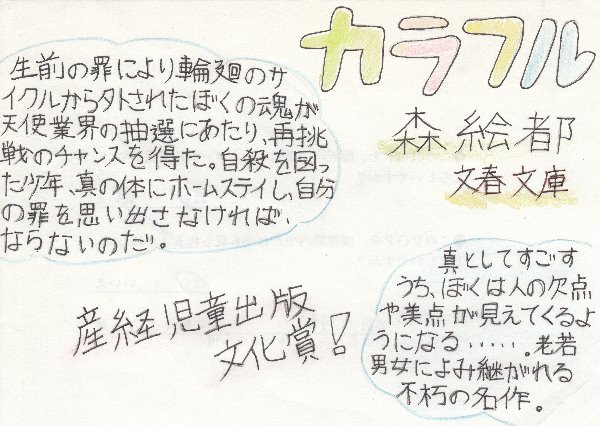 カラフル
森絵都
文春文庫
生前の罪により輪廻のサ
イクルから外されたぼくの魂が
天使業界の抽選にあたり、再挑
戦のチャンスを得た。自殺を図っ
た少年、真の体にホームステイし、自分
の罪を思い出さなければ、
ならないのだ。
産経児童出版
文化賞!
真としてすごす
うち、ぼくは人の欠点
や美点が見えてくるよ
うになる……。老若
男女によみ継がれる
不朽の名作。